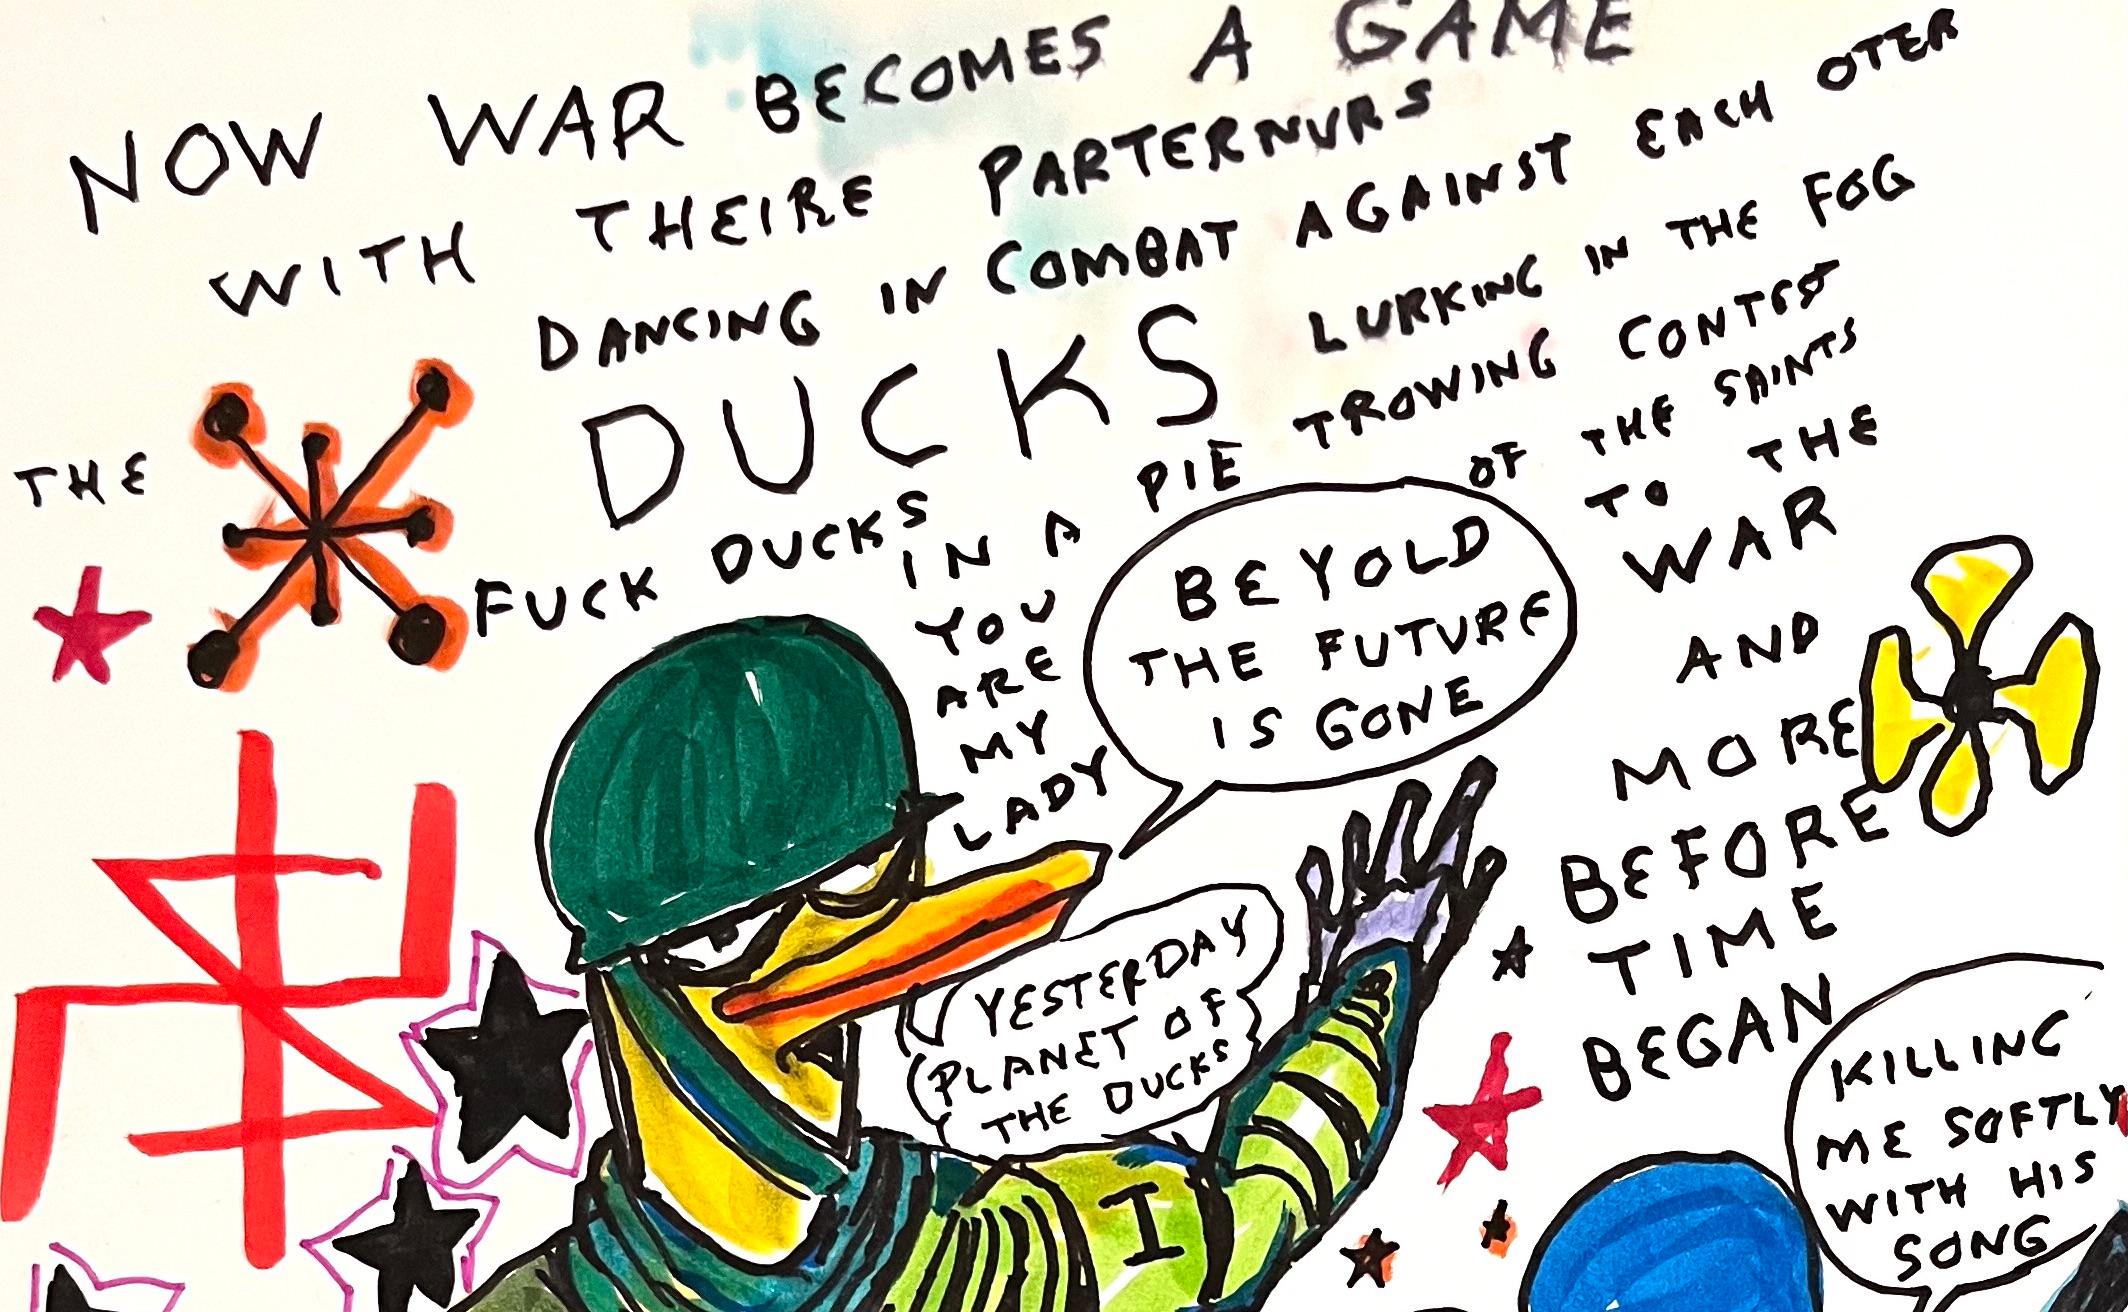 NOW WAR BECOMES A GAME
WITH THEIRE PARTERNURS
DANCING IN COMBAT AGAINST EACH OTER
THE DUCKS LURKING IN THE FOG
FUCK DUCKS IN A PIE TROWING CONTEST
OF THE SAINTS
TO THE
WAR
AND
MORE
BEFORE
TIME
BEGAN
YOU
ARE
MY
LADY
BEYOLD
THE FUTURE
IS GONE
YESTERDAY
PLANET OF
THE DUCKS
I
KILLING
ME SOFTLY
WITH HIS
SONG